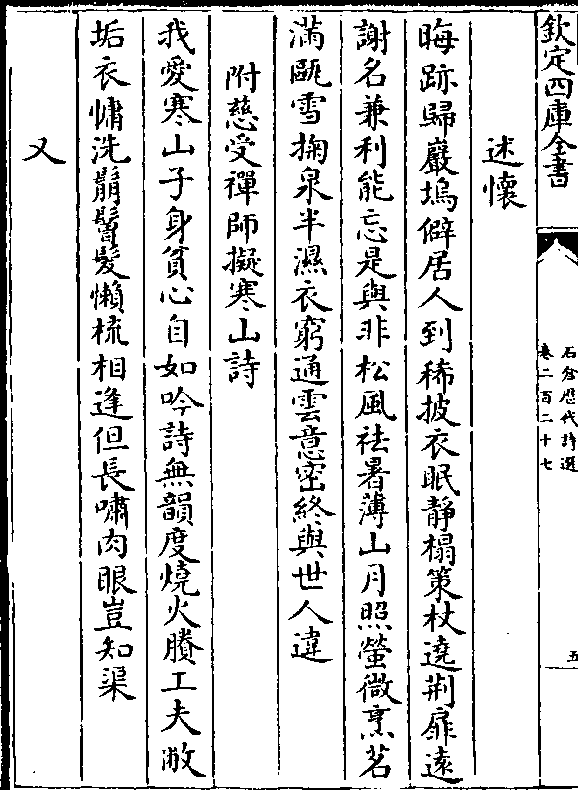 欽定四庫全書
石倉歷代詩選
卷二百二十七
五
述懷
晦跡歸巖塢僻居人到稀披衣眠靜榻策杖遶荆扉遠
謝名兼利能忘是與非松風祛暑薄山月照螢微烹茗
滿甌雪掬泉半濕衣窮通雲意密終與世人違
附慈受禪師擬寒山詩
我愛寒山子身貧心自如吟詩無韻度燒火賸工夫敝
垢衣慵洗鬅鬙髮懶梳相逢但長嘯肉眼豈知渠
又